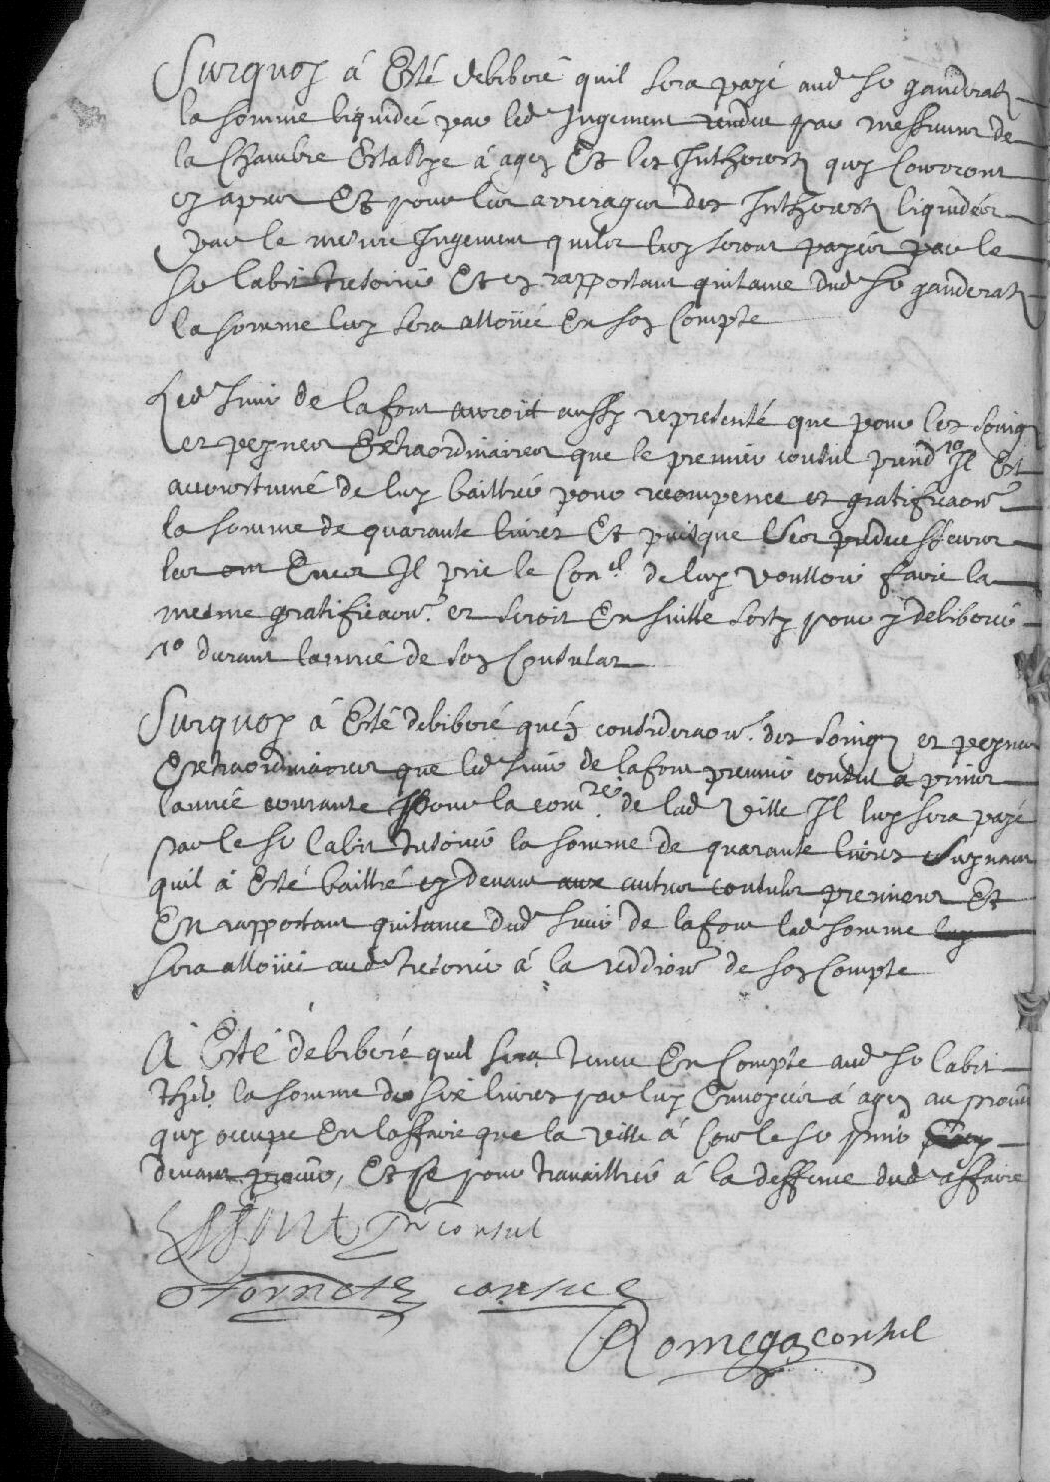 Surquoy à Esté deliberé quil sera payé aud sr ganderatz
la somme liquidée par led Jugement rendeu par messieurs de
la Chambre Establye à agen Et les Inthérestz quy Courront
cy apres Et pour les arrerages des Inthérestz liquidés
par le mesme Jugement quiles luy seront payées par le
sr labit tresorier Et en rapportant quitance dud sr ganderatz
la somme luy sera alloüée En son Compte
Led sieur de lafont auroit aussy representé que pour les soings
et peynes Extraordinaires que le premier consul prend Il Est
accoustumé de luy bailher pour recompence et gratificaon
la somme de quarante livres Et puisque ses predecesseurs
les ont Eues Il prie le Conel de luy voulloir faire la
mesme gratificaon. et seroit En suitte sorty pour y deliberé
durant lannée de son Consulat
Surquoy à Esté deliberé quén consideraon. des soings et peynes
Extraordinaires que led sieur de lafont premier consul a prinses
lannée courante pour la comté de lad Ville Il luy sera payé
par le sr labit tresorier la somme de quarante livres suyvant
quil à Esté bailhé cy devant aux autres consuls premiers Et
En rapportant quitance dud sieur de lafont lad somme
sera alloüée aud tresorier à la reddion de son Compte
A Esté deliberé quil sera tenu En Compte aud sr labit
thér. la somme de six livres par luy Envoyées à agen au procur
quy occupe En laffaire que la Ville à Contre le sr
devant procur, Et ce pour travailher à la deffence dud affaire
Lafont pr consul
Fornetz consul
Romega consul